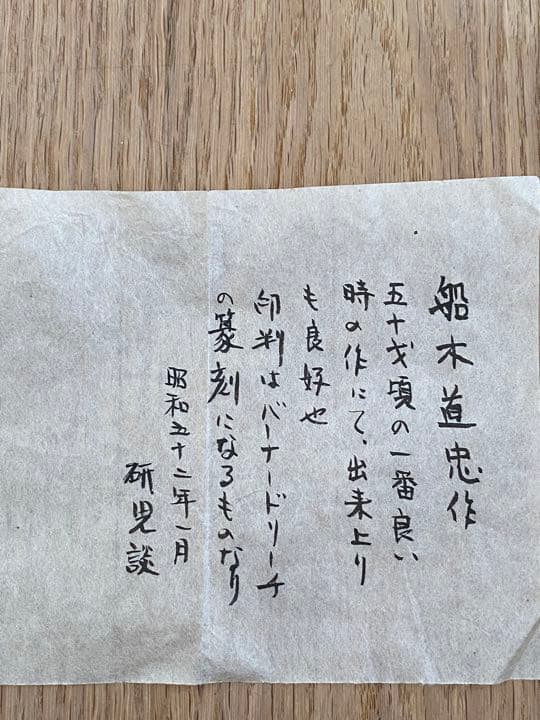 船木道忠作
五十才頃の一番良い
時の作にて、出来上り
も良好也
印判はバーナードリーチ
の篆刻になるものなり
昭和五十二年一月
研児談